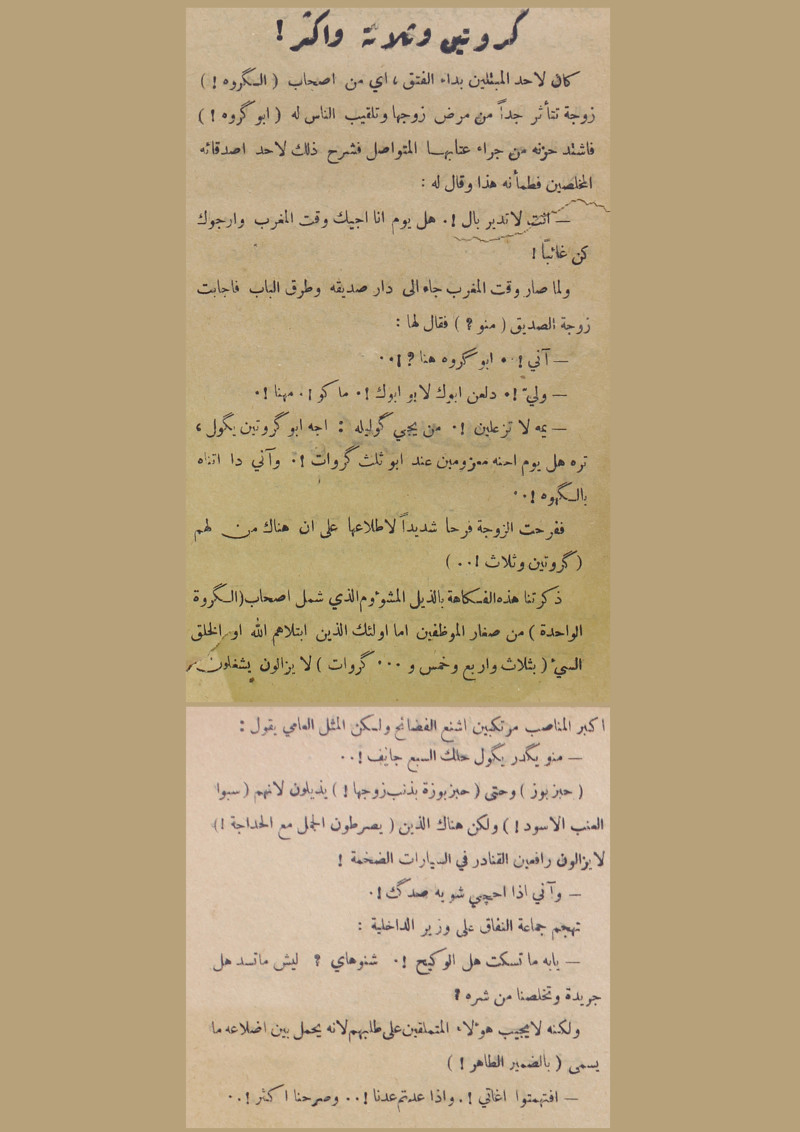 گروتين وثلاثة واكثر !
كان لاحد المبتلين بداء الفتق ، اي من اصحاب ( الگروه ! )
زوجة تتأثر جداً من مرض زوجها وتلقيب الناس له ( ابو گروه ! )
فاشتد حزنه من جراء عتابهـا المتواصل فشرح ذلك لاحد اصدقائه
المخلصين فطمأنه هذا وقال له :
— انت لاتدير بال !. هل يوم انا اجيك وقت المغرب وارجوك
كن غائباً !
ولما صار وقت المغرب جاء الى دار صديقه وطرق الباب فاجابت
زوجة الصديق ( منو ؟ ) فقال لها :
— آني ! . ابو گروه هنا ؟ !..
— ولي !. دلعن ابوك لابو ابوك !. ماكو !. مهنا !.
— يمه لا تزعلين !. من يجي گوليله : اجه ابو گروتين يگول ،
تره هل يوم احنه معزومين عند ابو ثلث گروات !. وآني دا اتناه
بالگهوه !..
ففرحت الزوجة فرحا شديداً لاطلاعها على ان هناك من لهم
( گروتين وثلاث !.. )
ذكرتنا هذه الفكاهة بالذيل المشوءوم الذي شمل اصحاب ( الگروة
الواحدة ) من صغار الموظفين اما اولئك الذين ابتلاهم الله او الخلق
السيء ( بثلاث واربع وخمس و ... گروات ) لا يزالون يشغلون
اكبر المناصب مرتكبين اشنع الفضائح ولكن المثل العامي يقول :
— منو يگدر يگول حلك السبع جايف !..
( حبزبوز ) وحتى ( حبزبوزة بذنب زوجها ! ) يذيلون لانهم ( سبوا
العنب الاسود ! ) ولكن هناك الذين ( يصرطون الجمل مع الحداجة ! )
لايزالون رافعين القنادر في السيارات الضخمة !
— وآني اذا احچي شو به صدگ !.
تهجم جماعة النفاق على وزير الداخلية :
— يابه ما تسكت هل الوكيح !. شنوهاي ؟ ليش ماتسد هل
جريدة وتخلصنا من شره ؟
ولكنه لايجيب هوءلاء المتملقين على طلبهم لانه يحمل بين اضلاعه ما
يسمى ( بالضمير الطاهر ! )
— افتهمتوا اغاتي !. واذا عدتم عدنا !.. وصرحنا اكثر !..